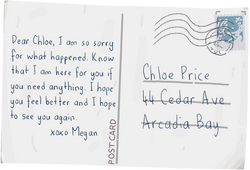 Dear Chloe, I am so sorry
for what happened. Know
that I am here for you if
you need anything. I hope
you feel better and I hope
to see you again.
xoxo Megan
POST CARD
Chloe Price
44 Cedar Ave
Arcadia Bay